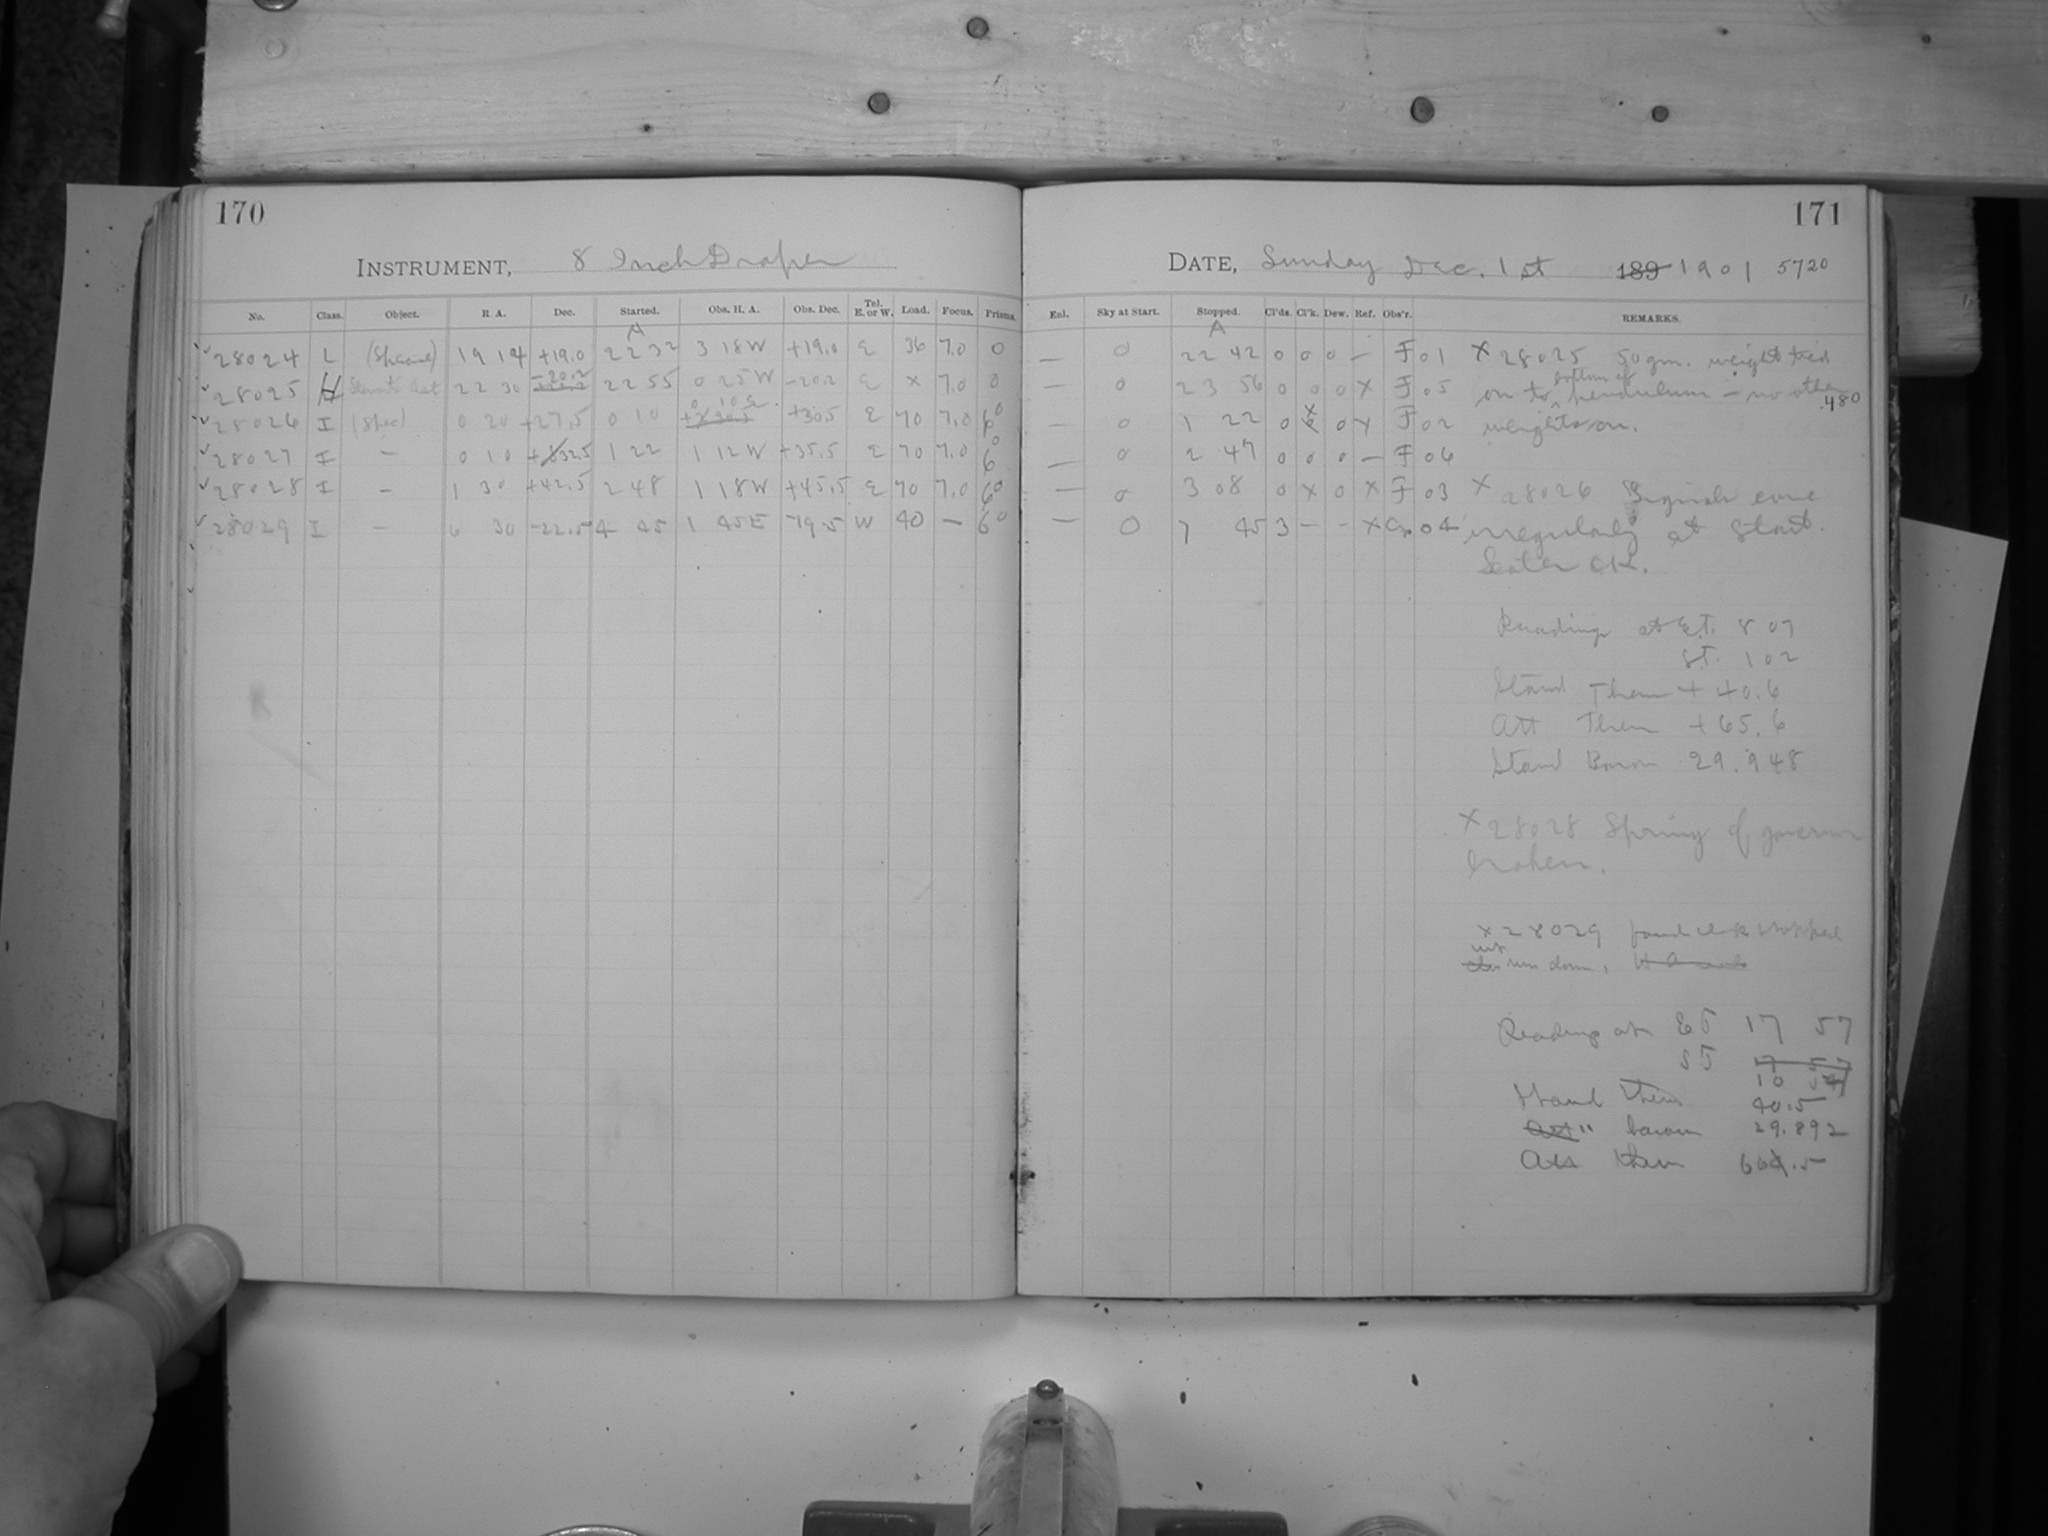 170
INSTRUMENT, 8 Inch Draper
No. Class. Object. R. A. Dec. Started. Obs. H. A. Obs. Dec. Tel. E. or W. Load. Focus. Prisms.
A
28024 L 19 14 +19.0 22 32 3 18 W +19.0 E 36 7.0 0
28025 H 22 30 -20.2 22 55 0 25 W -20.2 E x 7.0 0
28026 I 0 20 +27.5 0 10 0 10 E +30.5 E 70 7.0 6
28027 I — 0 10 +32.5 1 22 1 12 W +35.5 E 70 7.0 6
28028 I — 1 30 +42.5 2 48 1 18 W +45.5 E 70 7.0 6
28029 I — 6 30 -22.5 4 45 1 45 E -19.5 W 40 — 6
171
DATE, Sunday Dec. 1st 189 1901 5720
Ent. Sky at Start. Stopped. Cl'ds. Cl'k. Dew. Ref. Obs'r. REMARKS.
A
— 0 22 42 0 0 0 — F 01 X 28025 50 gm. weight tied
— 0 23 56 0 0 0 X F 05 on to bottom of pendulum — no other
.480
— 0 1 22 0 x 0 x F 02 weights on.
— 0 2 47 0 0 0 — F 06
— 0 3 08 0 X 0 X F 03 X 28026 Signals came
— 0 7 45 3 — — X 04 irregularly at Start.
Later OK.
Readings at E.T. 8 07
S.T. 1 02
Stand Therm + 40.6
Att Therm + 65.6
Stand Barom 29.948
X 28028 Spring of governor
broken.
x 28029 found clock stopped
not run down.
Readings at ET 17 57
ST 17 57
10 54
Stand Therm 40.5
Att " barom 29.892
Att therm